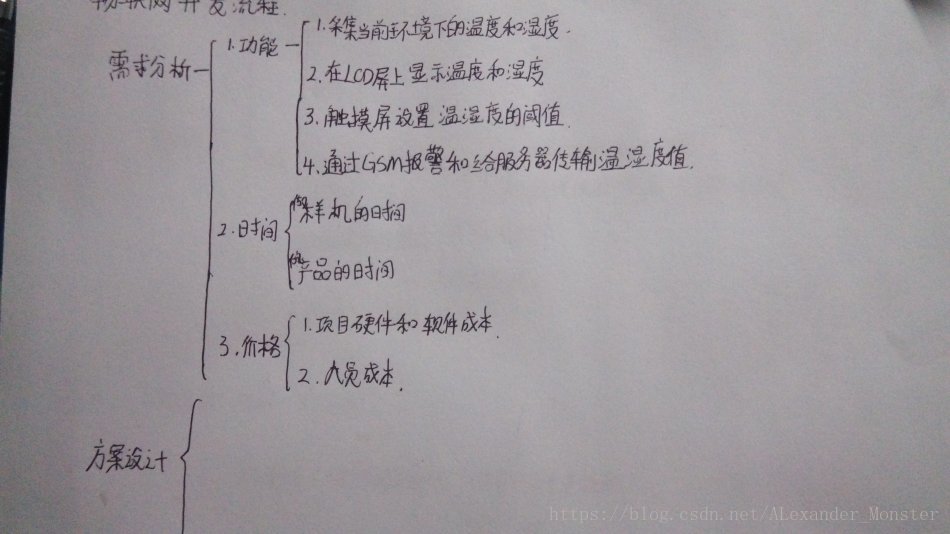 物联网开发流程.
需求分析
1.功能
1.采集当前环境下的温度和湿度.
2.在LCD屏上显示温度和湿度
3.触摸屏设置温湿度的阈值.
4.通过GSM报警和给服务器传输温湿度值.
2.时间
样机的时间
产品的时间
3.价格
1.项目硬件和软件成本.
2.人员成本.
方案设计
https://blog.csdn.net/ALexander_Monster